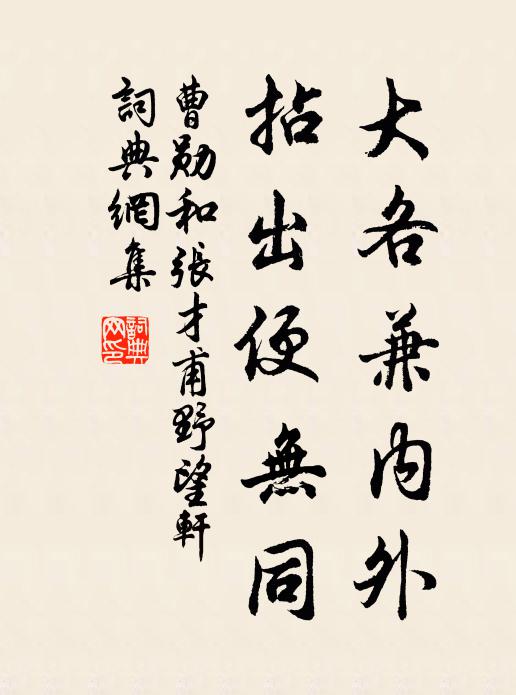 大各兼内外
拈出便無同
曹勛和張才甫野望軒
詞典網集
詞典网印